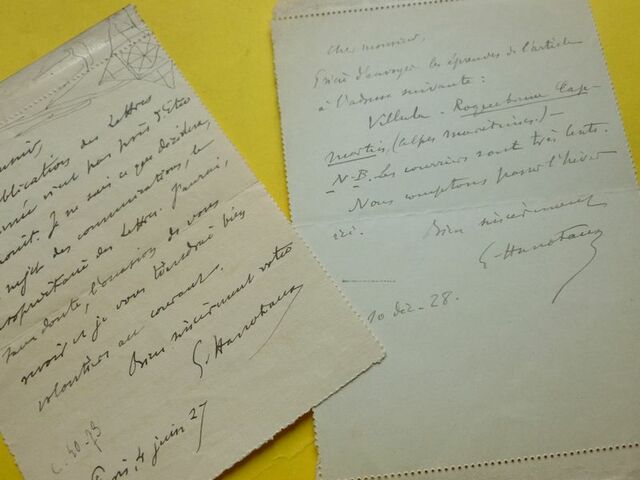 blications des Lettres
n'est pas près d'être
Je ne sais ce que décidera,
sujet des communications, le
propriétaire des Lettres. J'aurai,
sans doute, l'occasion de vous
revoir et je vous tiendrai bien
volontiers au courant.
Bien sincèrement votre
G. Hanotaux
Paris, 4 juin 27
Cher monsieur,
Prière d'envoyer les épreuves de l'article
à l'adresse suivante :
Villula - Roquebrune Cap-
Martin, (Alpes maritimes.) -
N-B. Les courriers sont très lents.
Nous comptons passer l'hiver
ici.
Bien sincèrement
G. Hanotaux
10 déc - 28.